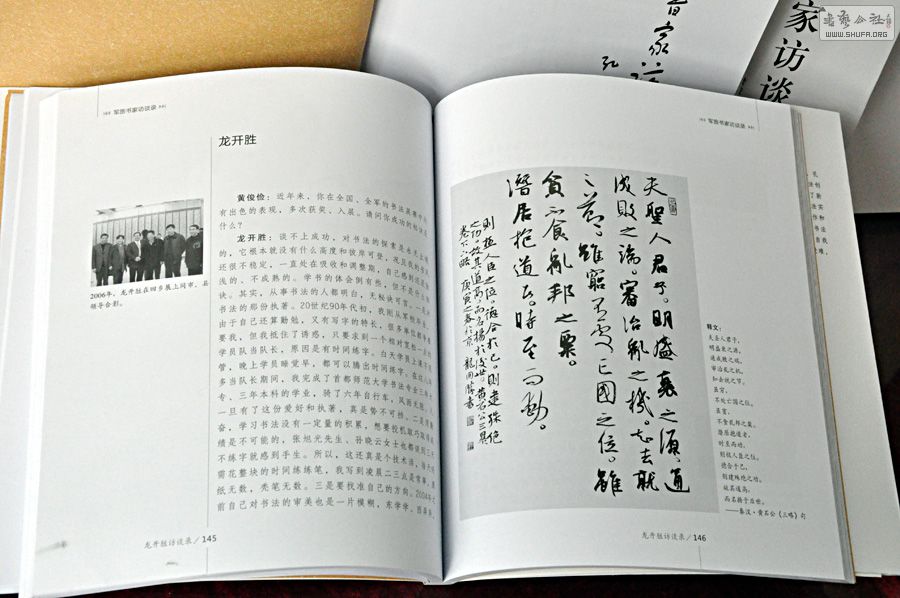 书法公社
WWW.SHUFA.ORG
家访谈
军旅书家访谈录
龙开胜
黄俊俭：近年来，你在全国、全军的书法展赛中均
有出色的表现，多次获奖、入展。请问你成功的秘诀是
什么？
龙开胜：谈不上成功，对书法的探索是永无止境
还很不稳定，一直处在吸收和调整期，自己感到还是
浅的、不成熟的。学书的体会倒有些，但不是什么秘
诀。其实，从事书法的人都明白，无秘诀可言，
书法的那份执著。20世纪90年代初，我刚从军校毕业，
由于自己还算勤勉，又有写字的特长，很多单位都争着
要我，但我抵住了诱惑，只要求到一个相对宽松一点的
学员队当队长，原因是有时间练字。白天学员上课不用
管，晚上学员睡觉早，都可以腾出时间练字。在任八年
多当队长期间，我完成了首都师范大学书法专业三年大
专、三年本科的学业，骑了六年自行车，风雨无阻。人
一旦有了这份爱好和执著，真是势不可挡。二是要勤
奋，学习书法没有一定量的积累，想要投机取巧取得成
绩是不可能的，张旭光先生、孙晓云女士也都谈到三天
不练字就感到手生。所以，这还真是个技术活，每天都
需花整块的时间练练笔，我写到凌晨二三点是常事，废
纸无数，秃笔无数。三是要找准自己的方向。2004年之
前自己对书法的审美也是一片模糊，东学学，西弄弄，
2006年，龙开胜在回乡展上同市、县
领导合影。
龙开胜访谈录／145
军旅书家访谈录
夫聖人君子。明盛衰之源。通
成敗之端。審治亂之機。知去就
之節。雖窮不處亡國之位。雖
貧不食亂邦之粟。
潛居抱道者。時至而動。
則極人臣之位。德合於己。則建殊絕
之功。故其道高而名揚於後世。黄石公三略
卷下句 庚寅之春於京 龍開勝書
释文：
夫圣人君子，
明盛衰之源，
通成败之端，
审治乱之机，
知去就之节。
虽穷，
不处亡国之位。
虽贫，
不食乱邦之粟。
潜居抱道者，
时至而动，
则极人臣之位。
德合于己，
则建殊绝之功。
故其道高，
而名扬于后世。
——秦汉·黄石公《三略》句
龙开胜访谈录／146